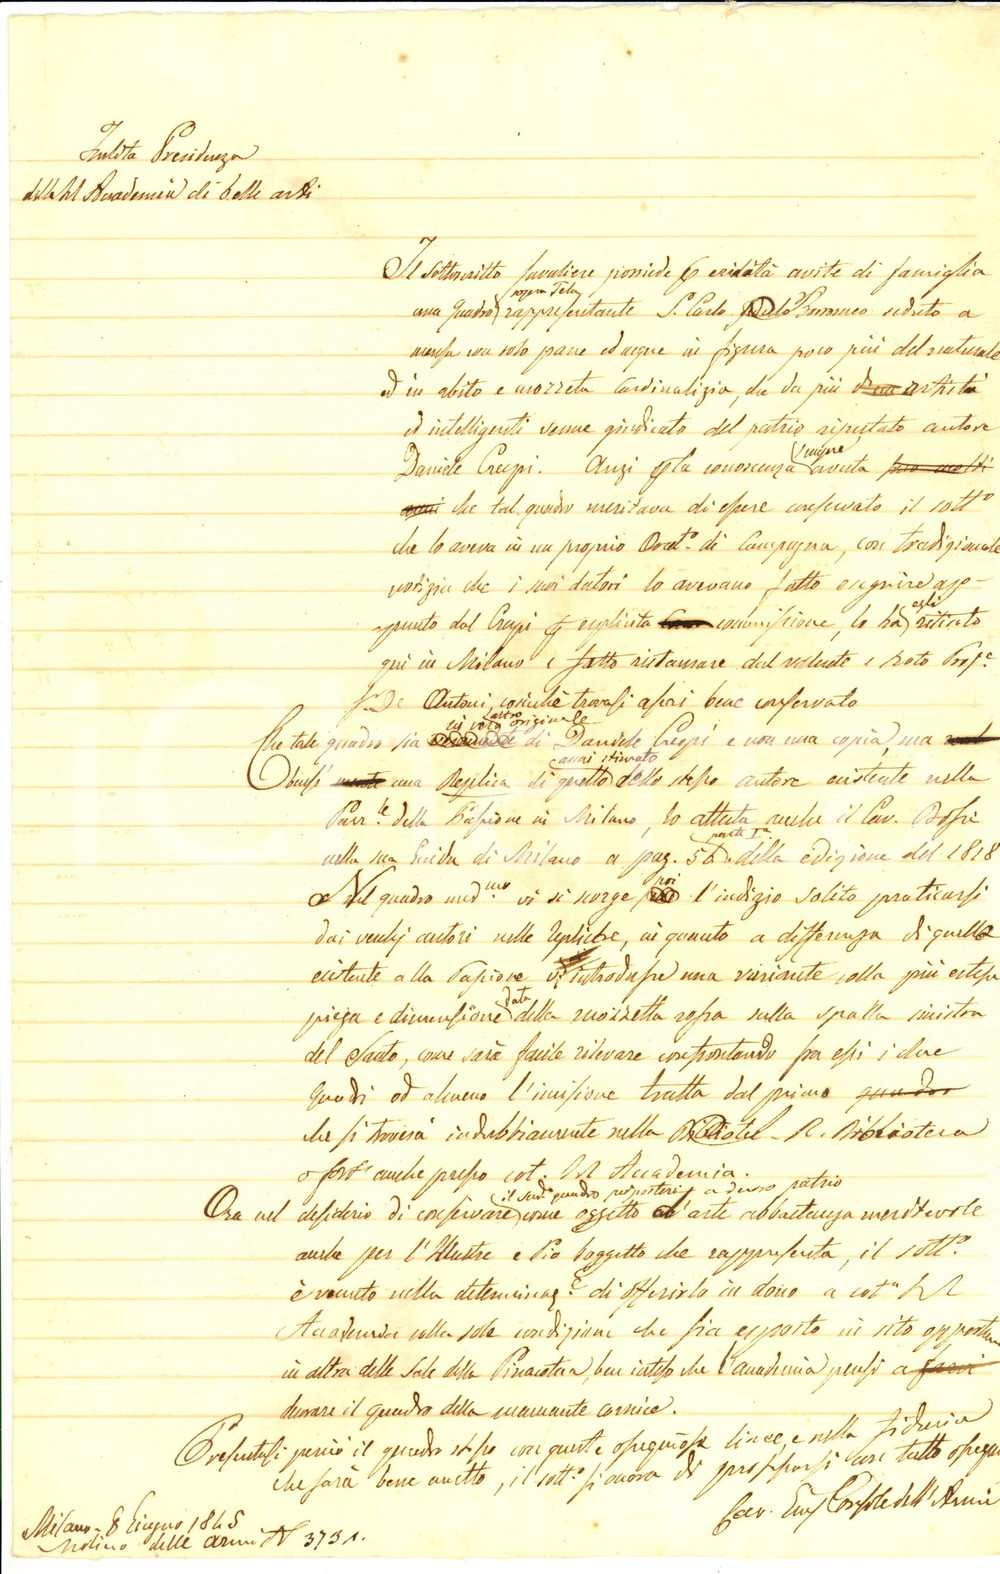 Inclita Presidenza
della R Accademia di belle arti
Il Sottoscritto Cavaliere possiede per eredità avita di famiglia
una Quadro sopra Tela rappresentante S. Carlo Borromeo seduto a
mensa con solo pane ed acqua in figura poco più del naturale
ed in abito e mozzeta Cardinalizia, che da più artisti
ed intelligenti venne giudicato del patrio riputato autore
Daniele Crespi. Anzi per la conoscenza sempre avuta
che tal quadro meritava di essere conservato il sott.o
che lo aveva in un proprio Orat.o di Campagna, con tradizionale
notizia che i suoi autori lo avevano fatto eseguire ap-
punto dal Crespi per esplicita commissione, lo ha egli ritirato
qui in Milano e fatto ristaurare dal valente e noto Prof.e
De Antoni, cosicchè trovasi assai bene conservato
Che tale quadro sia vero originale di Daniele Crespi e non una copia, ma
bensì una Replica di quello assai stimato dello stesso autore esistente nella
Parr.le della Passione in Milano, lo attesta anche il Cav. Bossi
nella sua Guida di Milano a pag. 56 parte I.a della edizione del 1818
Nel quadro med.mo vi si scorge poi l'indizio solito praticarsi
dai vecchj autori nelle Repliche, in quanto a differenza di quello
esistente alla Passione vi introdusse una variante colla più estesa
piega e dimensione data della mozzetta rossa sulla spalla sinistra
del Santo, come sarà facile rilevare confrontando fra essi i due
Quadri od almeno l'incisione tratta dal primo quadro
che si troverà indubbiamente nella R. Biblioteca
o fors' anche presso cot. R Accademia.
Ora nel desiderio di conservare il sud.o quadro a decoro patrio
come oggetto d'arte abbastanza meritevole
anche per l'Illustre e Pio Soggetto che rappresenta, il sott.o
è venuto nella determinaz.e di offerirlo in dono a cot.a R
Accademia colla sola condizione che sia esposto in sito opportuno
in altra delle Sale della Pinacoteca, ben inteso che l'accademia pensi a
decorare il quadro della mancante cornice.
Presentasi perciò il quadro stesso con queste ossequiose linee, e nella fiducia
che sarà bene accetto, il sott.o si onora di professarsi con tutto ossequio
Cav.
Milano - 8 Giugno 1845
Molino delle Armi N 3731.